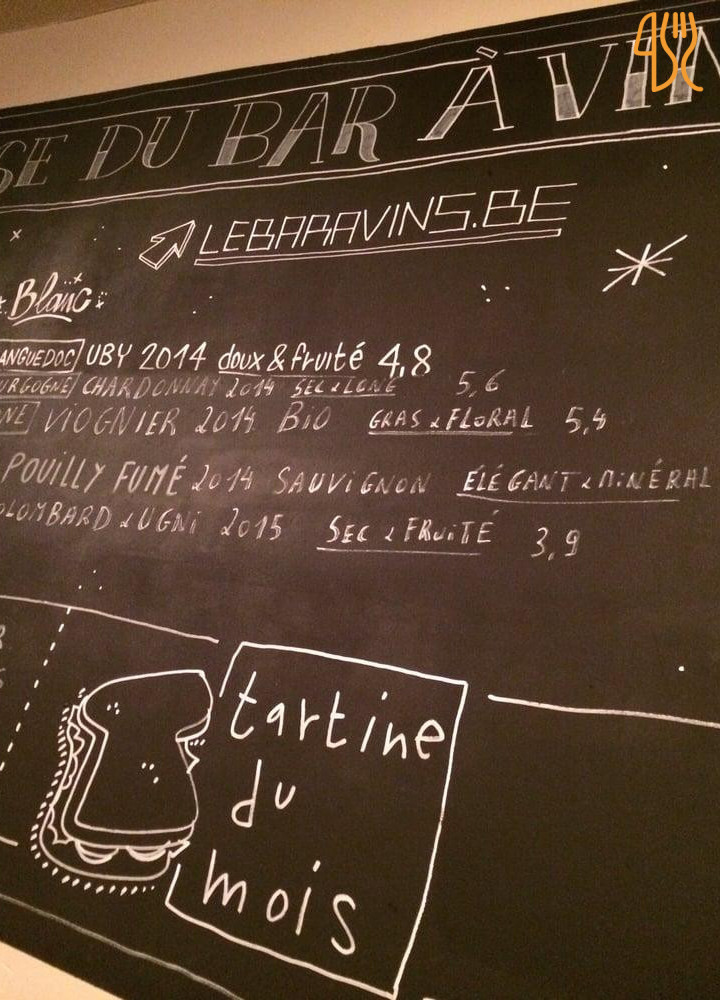 SE DU BAR À VIN
LEBARAVINS.BE
Blanc
ANGUEDOC UBY 2014 doux & fruité 4,8
URGOGNE CHARDONNAY 2014 SEC & LONG 5,6
NE VIOGNIER 2014 BiO GRAS & FLORAL 5,4
POUILLY FUMÉ 2014 SAUViGNON ÉLÉGANT & MiNÉRAL
OLOMBARD & UGNi 2015 SEC & FRUiTÉ 3,9
tartine
du
mois